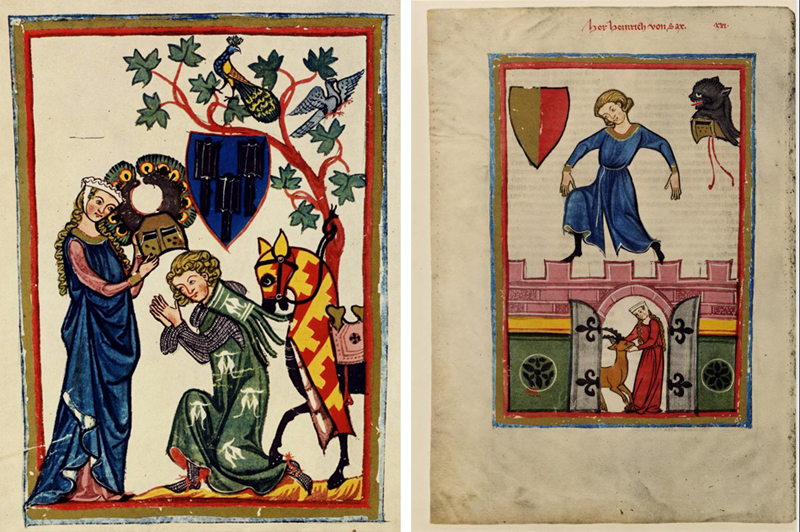 her heinrich von sax. xvi.